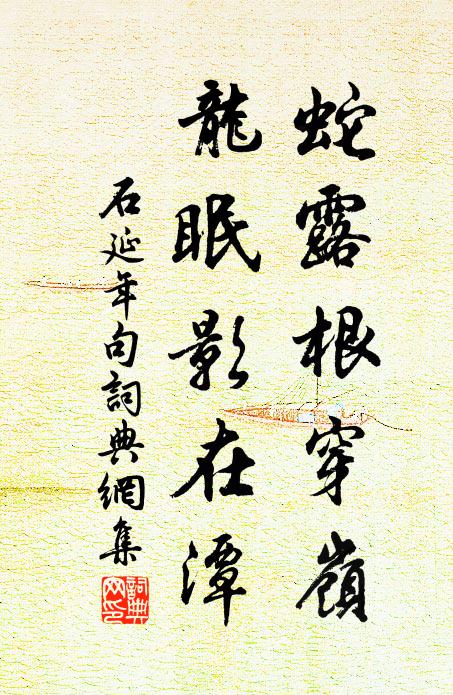 蛇露根穿嶺
龍眠影在潭
石延年句詞典網集
詞典
网印